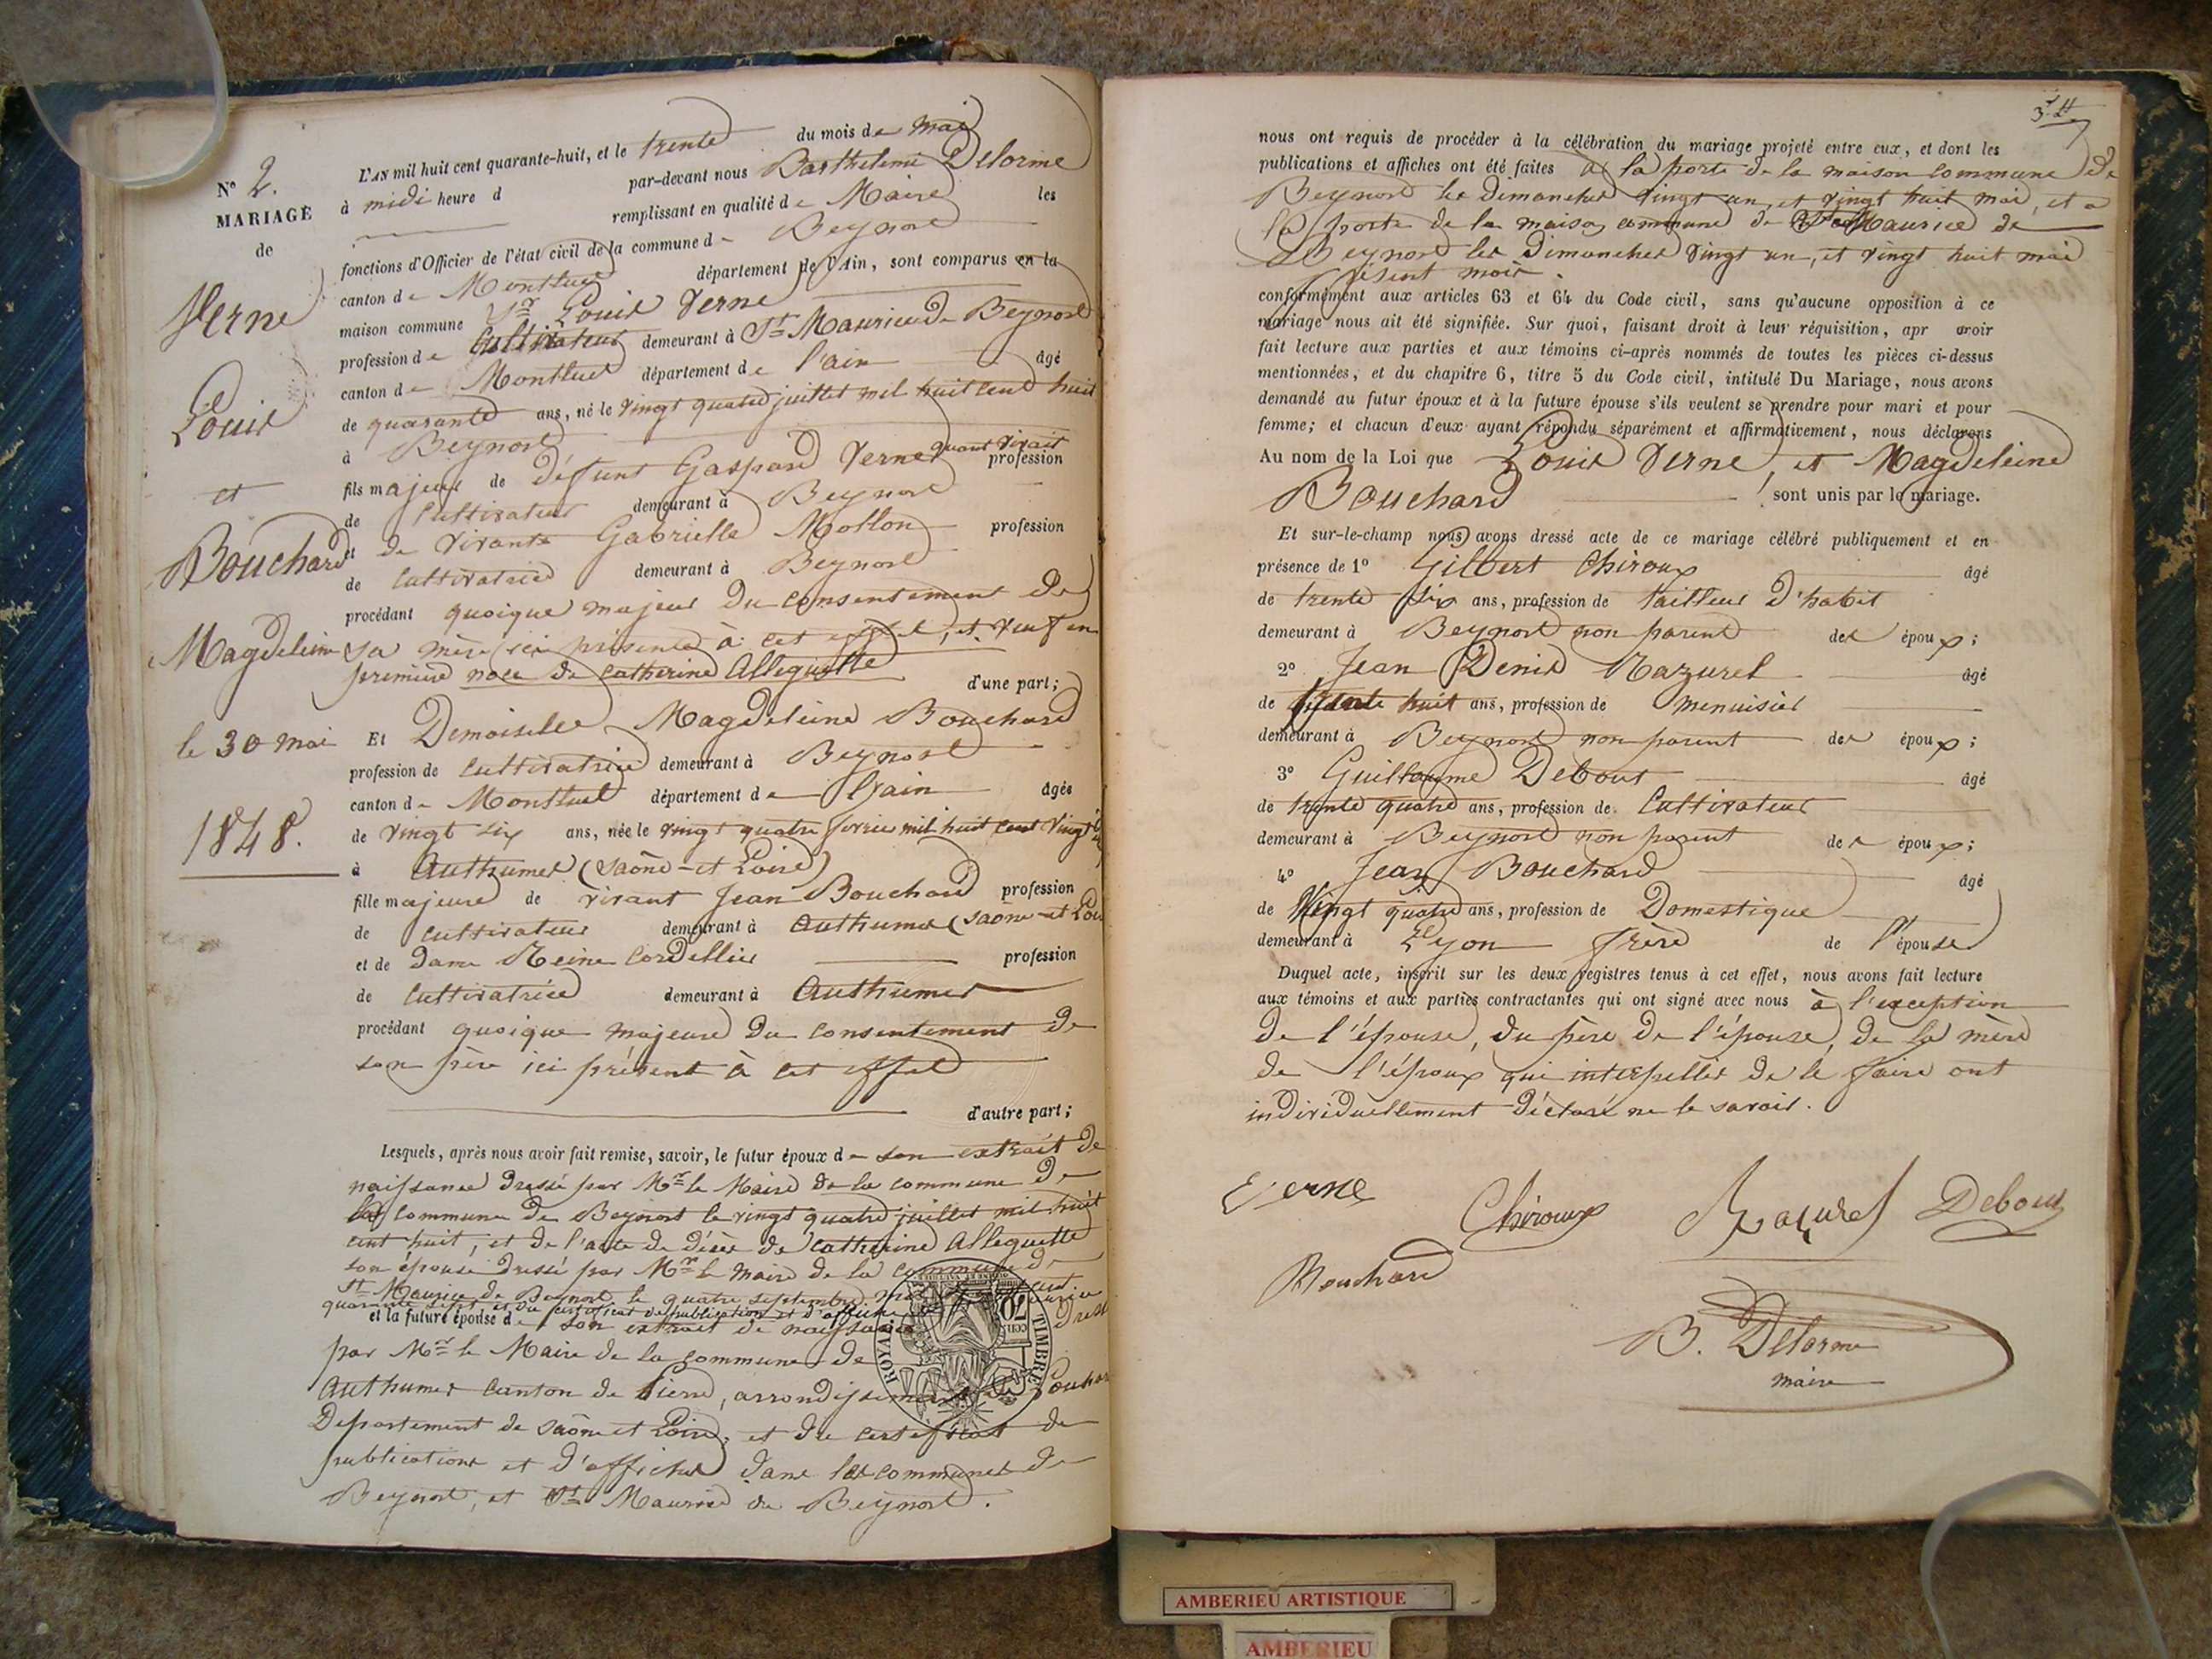 N° 2.
MARIAGE
de
Verne
Louis
et
Bouchard
Magdeleine
le 30 mai
1848.
L'AN mil huit cent quarante-huit, et le trente du mois de mai
à midi heure d par-devant nous Barthelemi Delorme
remplissant en qualité de Maire les
fonctions d'Officier de l'état civil de la commune de Beynost
canton de Montluel département de l'Ain, sont comparus en la
maison commune Sr Louis Verne
profession de Cultivateur demeurant à St Maurice de Beynost
canton de Montluel département de l'ain âgé
de quarante ans, né le vingt quatre juillet mil huit cent huit
à Beynost
fils majeur de défunt Gaspard Verne quant vivait profession
de Cultivateur demeurant à Beynost
et de vivante Gabrielle Mollon profession
de Cultivatrice demeurant à Beynost
procédant quoique majeur du consentement de
sa mère ici présente à cet effet, et veuf en
première noce de Catherine Alleguette
d'une part;
Et Demoiselle Magdeleine Bouchard
profession de Cultivatrice demeurant à Beynost
canton de Montluel département de l'ain âgée
de vingt six ans, née le vingt quatre fevrier mil huit cent vingt
à Authumes (Saône-et-Loire)
fille majeure de vivant Jean Bouchard profession
de cultivateur demeurant à Authumes (Saône-et-Loi
et de Dame Reine Cordellier profession
de Cultivatrice demeurant à Authumes
procédant quoique majeure du consentement de
son père ici présent à cet effet
d'autre part;
Lesquels, après nous avoir fait remise, savoir, le futur époux de son extrait de
naissance dressé par Mr le Maire de la commune de
commune de Beynost le vingt quatre juillet mil huit
cent huit, et de l'acte de décès de Catherine Alleguette
son épouse dressé par Mr le maire de la commune de
St Maurice de Beynost le quatre septembre mil
quarante sept et du certificat de publication et d'affiche
et la future épouse de son extrait de naissance dressé
par Mr le Maire de la commune de
Authumes canton de Pierre, arrondissement de Louhans
Departement de Saône et Loire, et du certificat de
publications et d'affiches dans les communes de
Beynost, et St Maurice de Beynost.
TIMBRE ROYAL
70 CEN
nous ont requis de procéder à la célébration du mariage projeté entre eux, et dont les
publications et affiches ont été faites à la porte de la maison commune de
Beynost les Dimanches vingt un et vingt huit mai, et a
la porte de la maison commune de St Maurice de
Beynost les Dimanches vingt un, et vingt huit mai
présent mois.
conformément aux articles 63 et 64 du Code civil, sans qu'aucune opposition à ce
mariage nous ait été signifiée. Sur quoi, faisant droit à leur réquisition, apr avoir
fait lecture aux parties et aux témoins ci-après nommés de toutes les pièces ci-dessus
mentionnées, et du chapitre 6, titre 5 du Code civil, intitulé Du Mariage, nous avons
demandé au futur époux et à la future épouse s'ils veulent se prendre pour mari et pour
femme; et chacun d'eux ayant répondu séparément et affirmativement, nous déclarons
Au nom de la Loi que Louis Verne, et Magdeleine
Bouchard sont unis par le mariage.
Et sur-le-champ nous avons dressé acte de ce mariage célébré publiquement et en
présence de 1° Gilbert Chiroux âgé
de trente six ans, profession de tailleur d'habit
demeurant à Beynost non parent des époux;
2° Jean Denis Mazuret âgé
de trente huit ans, profession de menuisier
demeurant à Beynost non parent des époux;
3° Guillaume Debout âgé
de trente quatre ans, profession de Cultivateur
demeurant à Beynost non parent des époux;
4° Jean Bouchard âgé
de Vingt quatre ans, profession de Domestique
demeurant à Lyon frère de l'épouse
Duquel acte, inscrit sur les deux registres tenus à cet effet, nous avons fait lecture
aux témoins et aux parties contractantes qui ont signé avec nous à l'exception
de l'épouse, du père de l'épouse, de la mère
de l'époux qui interpellés de le faire ont
individuellement déclaré ne le savoir.
Verne
Chiroux
Debout
Bouchard
B. Delorme
maire
AMBERIEU ARTISTIQUE
AMBERIEU